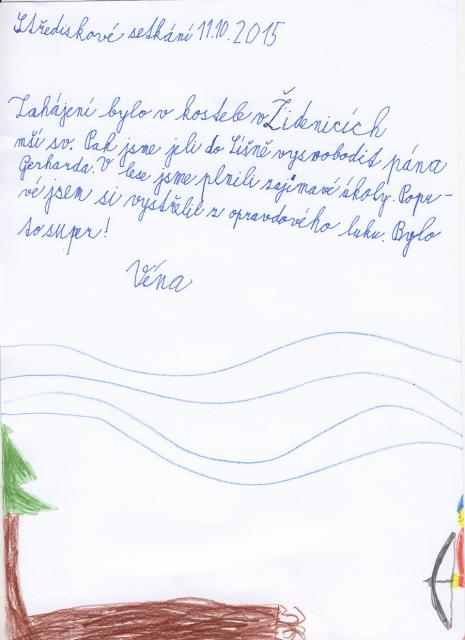 Střediskové setkání 11.10.2015
Zahájení bylo v kostele v Židenicích
mší sv. Pak jsme jeli do Líšně vysvobodit pána
Gerharda. V lese jsme plnili zajímavé úkoly. Popr-
vé jsem si vystřelil z opravdového luku. Bylo
to super!
Véna